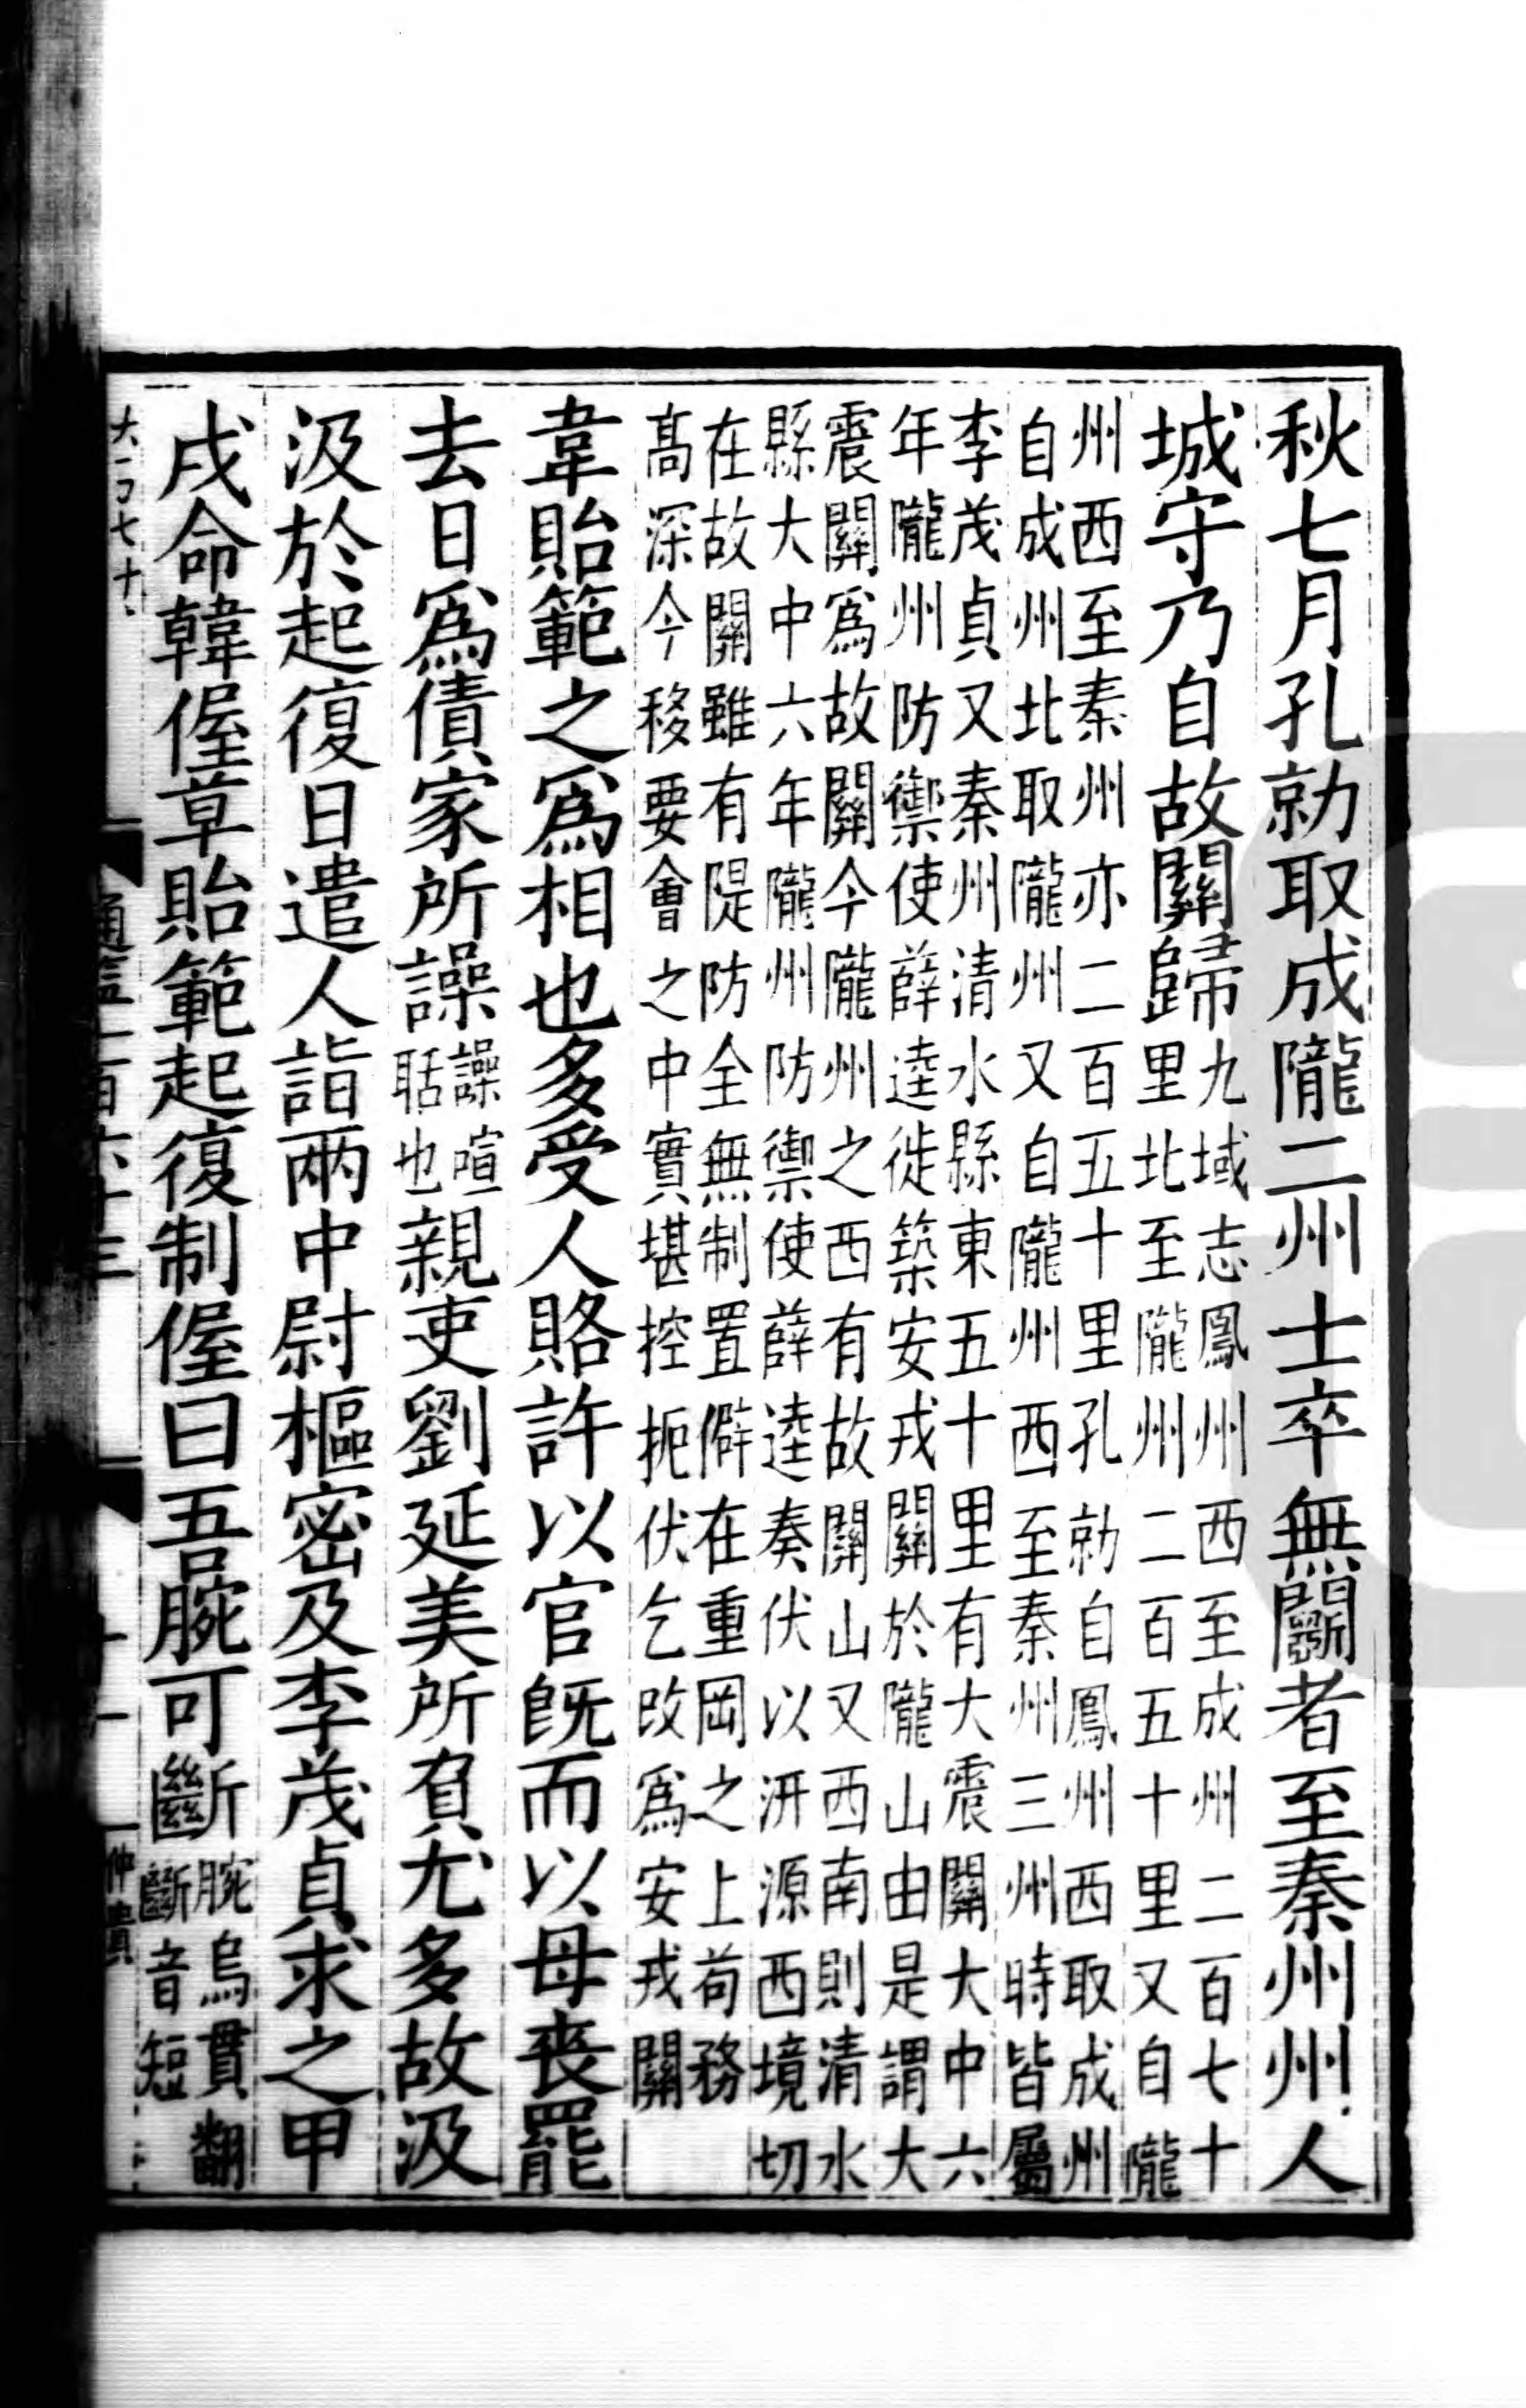 秋七月孔勍取成隴二州士卒無鬬者至秦州州人
城守乃自故關歸九域志鳳州西至成州二百七十
里北至隴州二百五十里又自隴
州西至秦州亦二百五十里孔勍自鳳州西取成州
自成州北取隴州又自隴州西至秦州三州時皆屬
李茂貞又秦州清水縣東五十里有大震關大中六
年隴州防禦使薛逵徙築安戎關於隴山由是謂大
震關爲故關今隴州之西有故關山又西南則清水
縣大中六年隴州防禦使薛逵奏伏以汧源西境切
在故關雖有隄防全無制置僻在重岡之上苟務
高深今移要會之中實堪控扼伏乞改爲安戎關
韋貽範之爲相也多受人賂許以官旣而以母喪罷
去日爲債家所譟譟喧
聒也親吏劉延美所負尤多故汲
汲於起復日遣人詣兩中尉樞密及李茂貞求之甲
戌命韓偓草貽範起復制偓曰吾腕可斷腕烏貫翻
斷音短